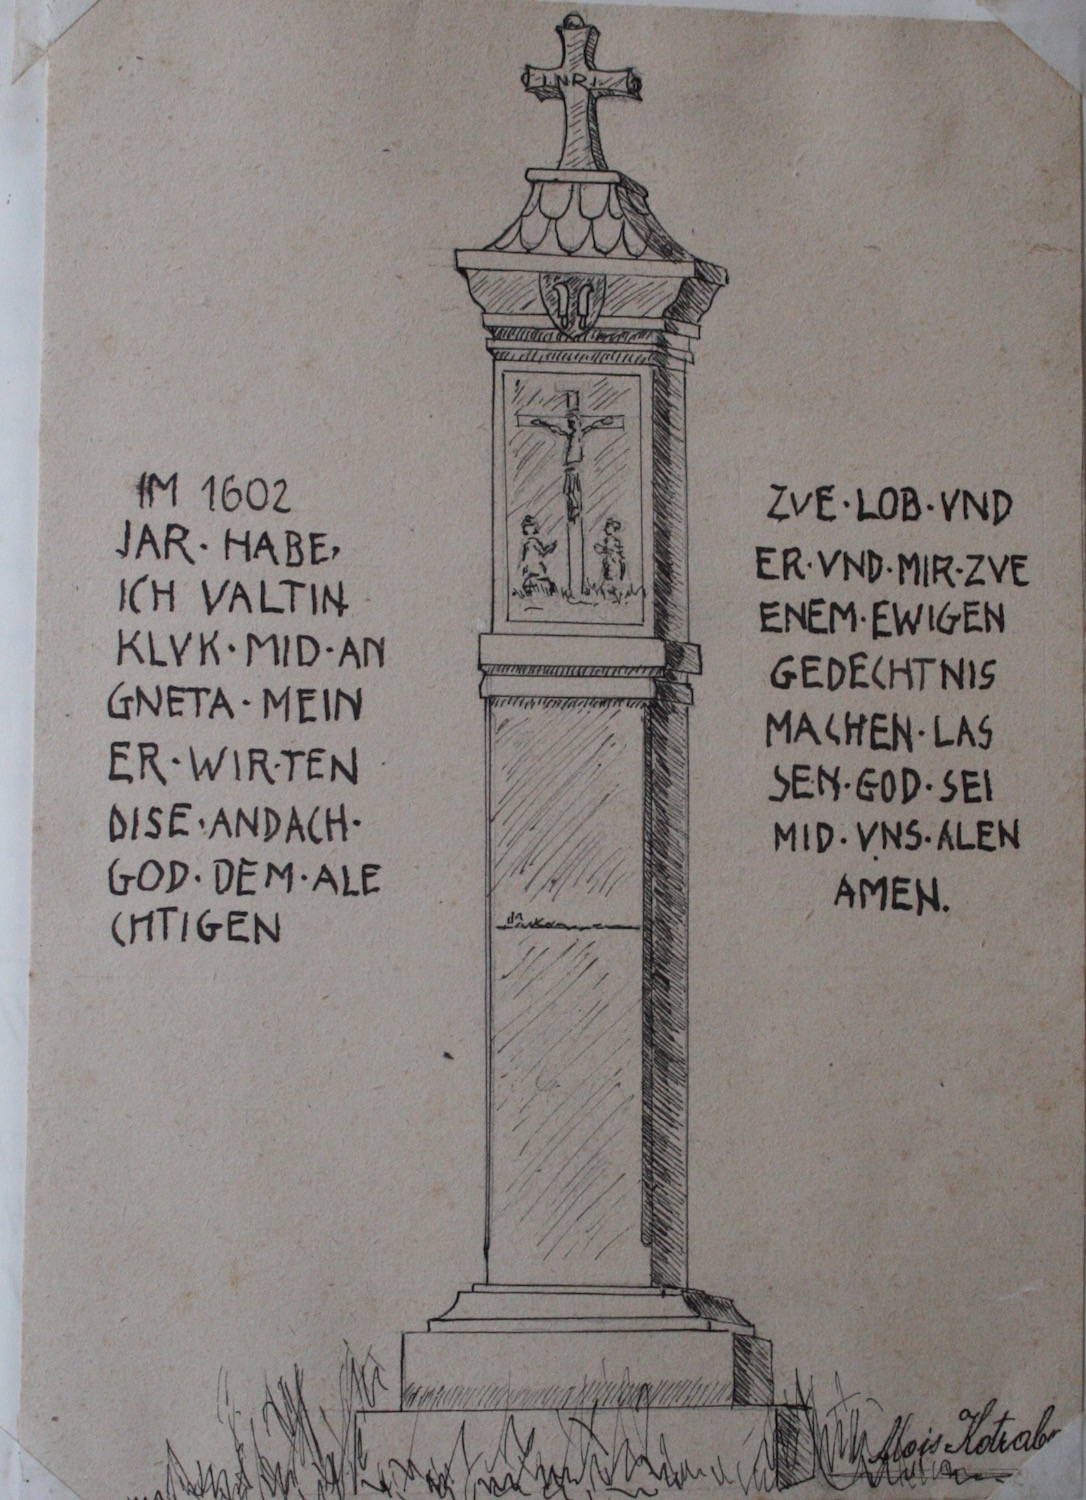 INRI
IM 1602
JAR · HABE,
ICH VALTIN
KLVK · MID · AN
GNETA · MEIN
ER · WIR · TEN
DISE · ANDACH ·
GOD · DEM · ALE
CHTIGEN
ZVE · LOB · VND
ER · VND · MIR · ZVE
ENEM · EWIGEN
GEDECHTNIS
MACHEN · LAS
SEN · GOD · SEI
MID · VNS · ALEN
AMEN.
Alois